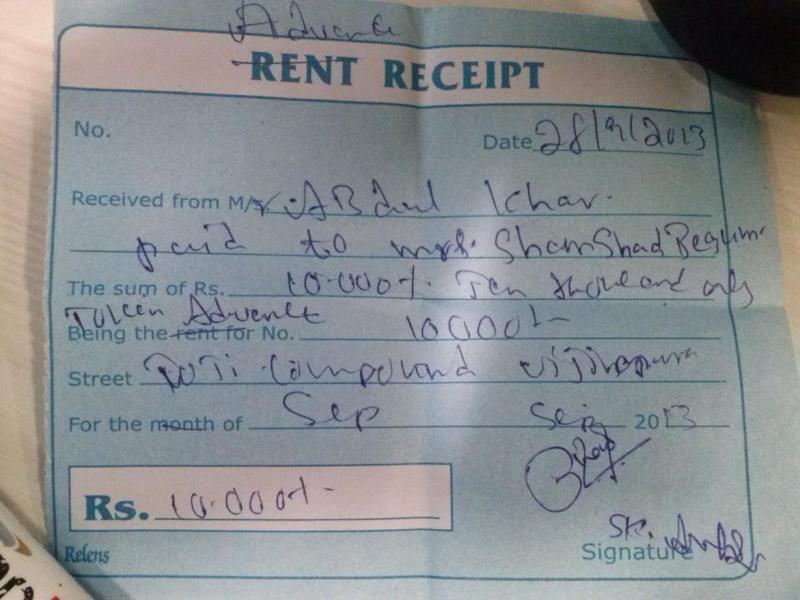 Advance
RENT RECEIPT
No.
Date 28/9/2013
Received from M/s ABdul Khan.
paid to mrs. ShamShad Begum.
The sum of Rs. 10.000/-. Ten thousand only
Token Advance
Being the rent for No. 10000/-
Street Compound
For the month of Sep Sep 2013
Rs. 10.000/-
Relens
SK.
Signature